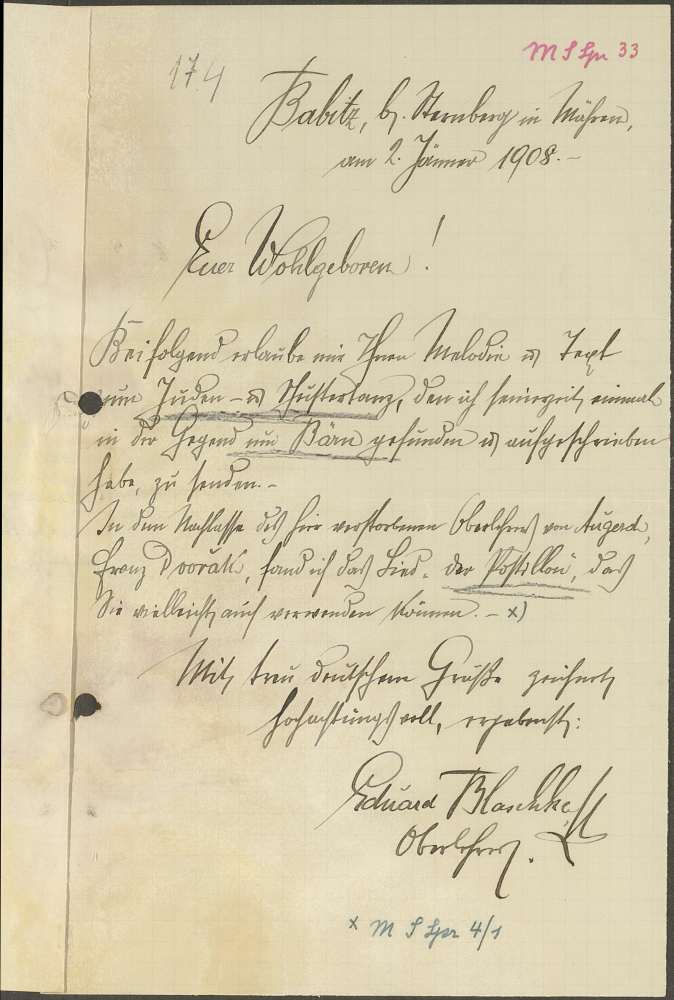 M S Spr 33
174
Babitz, b. Sternberg in Mähren,
am 2. Jänner 1908. –
Euer Wohlgeboren!
Beifolgend erlaube mir Ihnen Melodie u Text
zum Juden- u Schustertanz, den ich seinerzeit einmal
in der Gegend um Bärn gefunden u aufgeschrieben
habe, zu senden. –
In dem Nachlasse des hier verstorbenen Oberlehrers von Augezd,
Franz Dvořák, fand ich das Lied „der Postillon", das
Sie vielleicht auch verwenden können. – x)
Mit treu deutschem Gruße zeichnet
hochachtungsvoll, ergebenst:
Eduard Blaschke
Oberlehrer.
x M S Spr 4/1